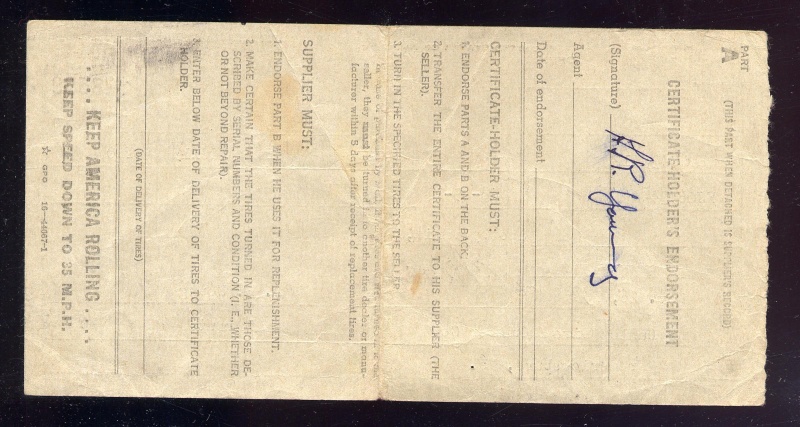 PART
A
(THIS PART WHEN DETACHED IS SUPPLIER'S RECORD)
CERTIFICATE-HOLDER'S ENDORSEMENT
(Signature)
Agent
Date of endorsement
CERTIFICATE-HOLDER MUST:
1. ENDORSE PARTS A AND B ON THE BACK.
2. TRANSFER THE ENTIRE CERTIFICATE TO HIS SUPPLIER (THE
SELLER).
3. TURN IN THE SPECIFIED TIRES TO THE SELLER
seller, they must be turned in to another tire dealer or manu-
facturer within 5 days after receipt of replacement tires.
SUPPLIER MUST:
1. ENDORSE PART B WHEN HE USES IT FOR REPLENISHMENT.
2. MAKE CERTAIN THAT THE TIRES TURNED IN ARE THOSE DE-
SCRIBED BY SERIAL NUMBERS AND CONDITION (I. E., WHETHER
OR NOT BEYOND REPAIR).
3. ENTER BELOW DATE OF DELIVERY OF TIRES TO CERTIFICATE
HOLDER.
(DATE OF DELIVERY OF TIRES)
.... KEEP AMERICA ROLLING ....
KEEP SPEED DOWN TO 35 M.P.H.
☆ GPO 16—44067-1